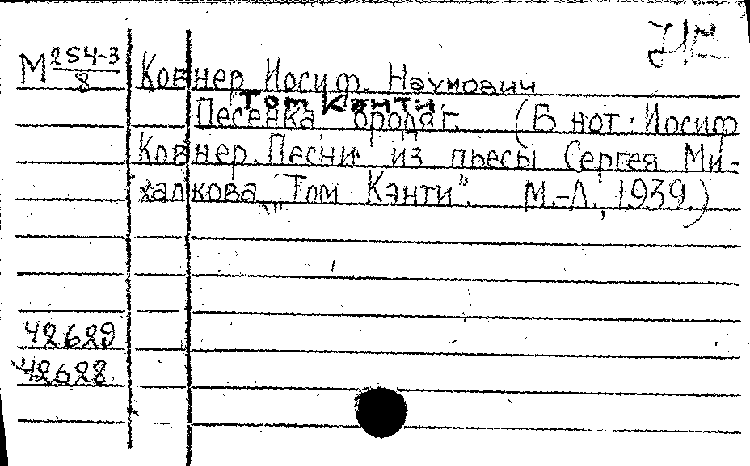 М 254-3/8 Ковнер, Иосиф Наумович
Том Кэнти
Песенка бродяг. (В нот. Иосиф
Ковнер. Песни из пьесы Сергея Ми-
халкова „Том Кэнти". М.-Л., 1939.)
42629
42628